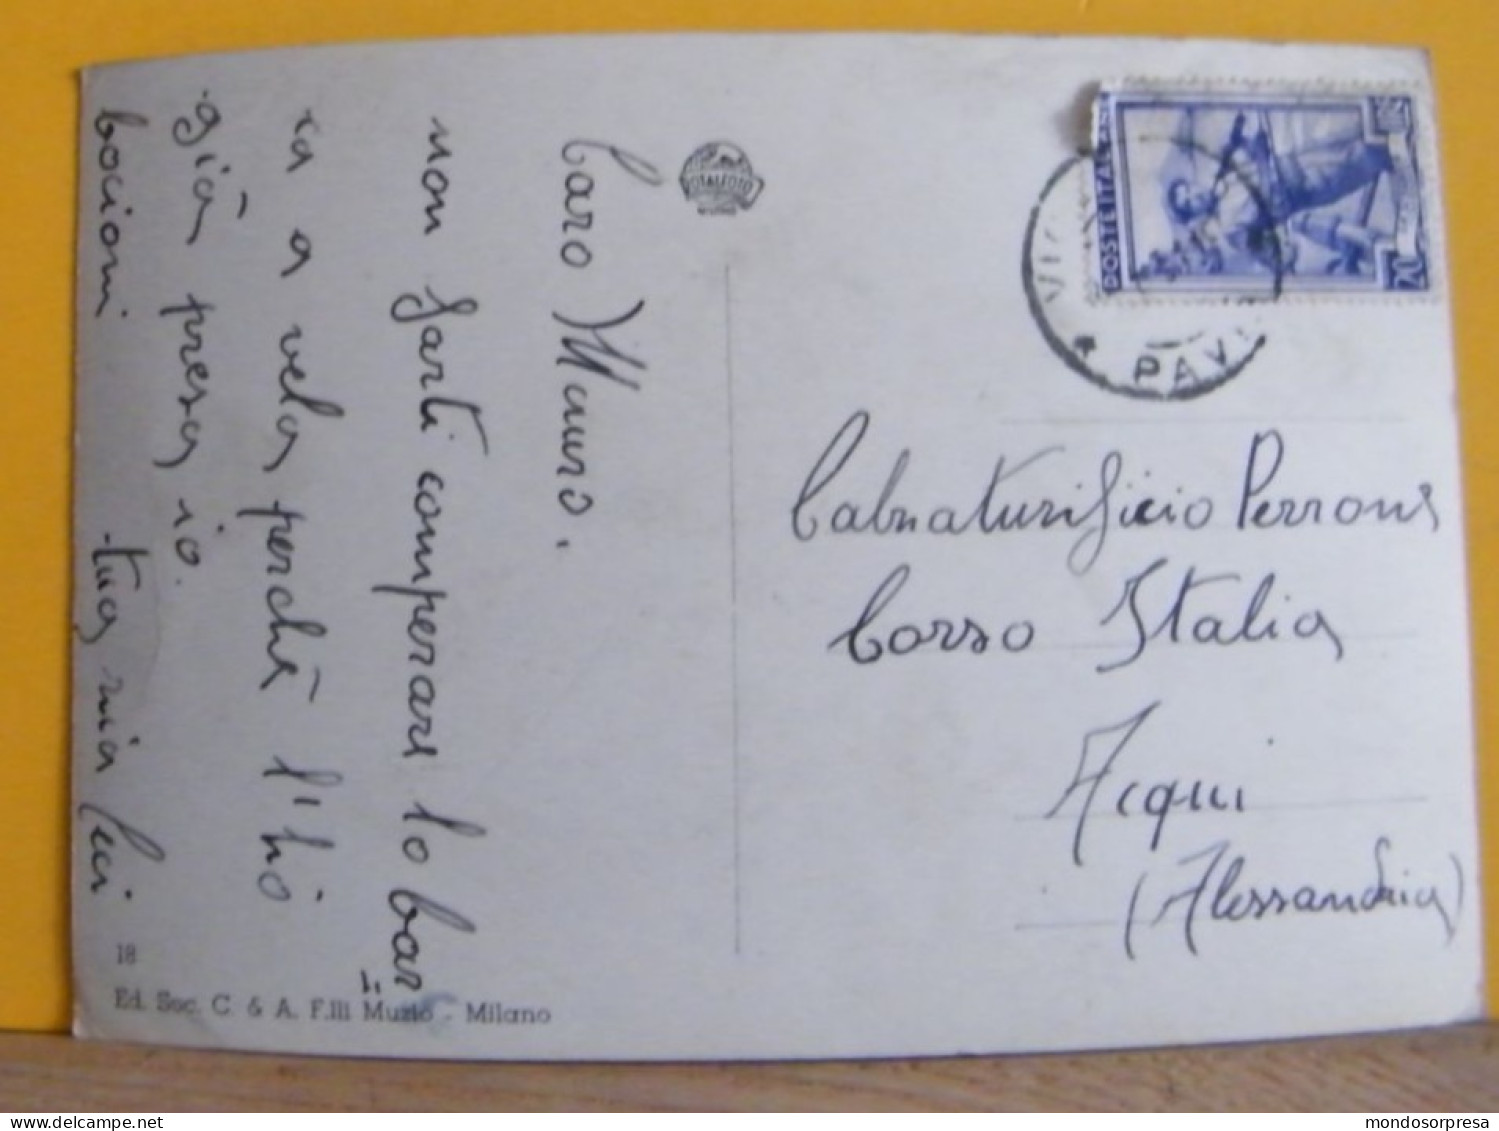 Caro Mauro.
non farti comperare lo bar
ca a vela perchè l'hò
già presa io.
bocioni tua mia Cici
TOTALFOTO
18
Ed. Soc. C. & A. F.lli Muzio - Milano
POSTE ITALIANE
20
PAVIA
Calzaturificio Perrone
Corso Italia
Acqui
(Alessandria)
delcampe.net
mondosorpresa